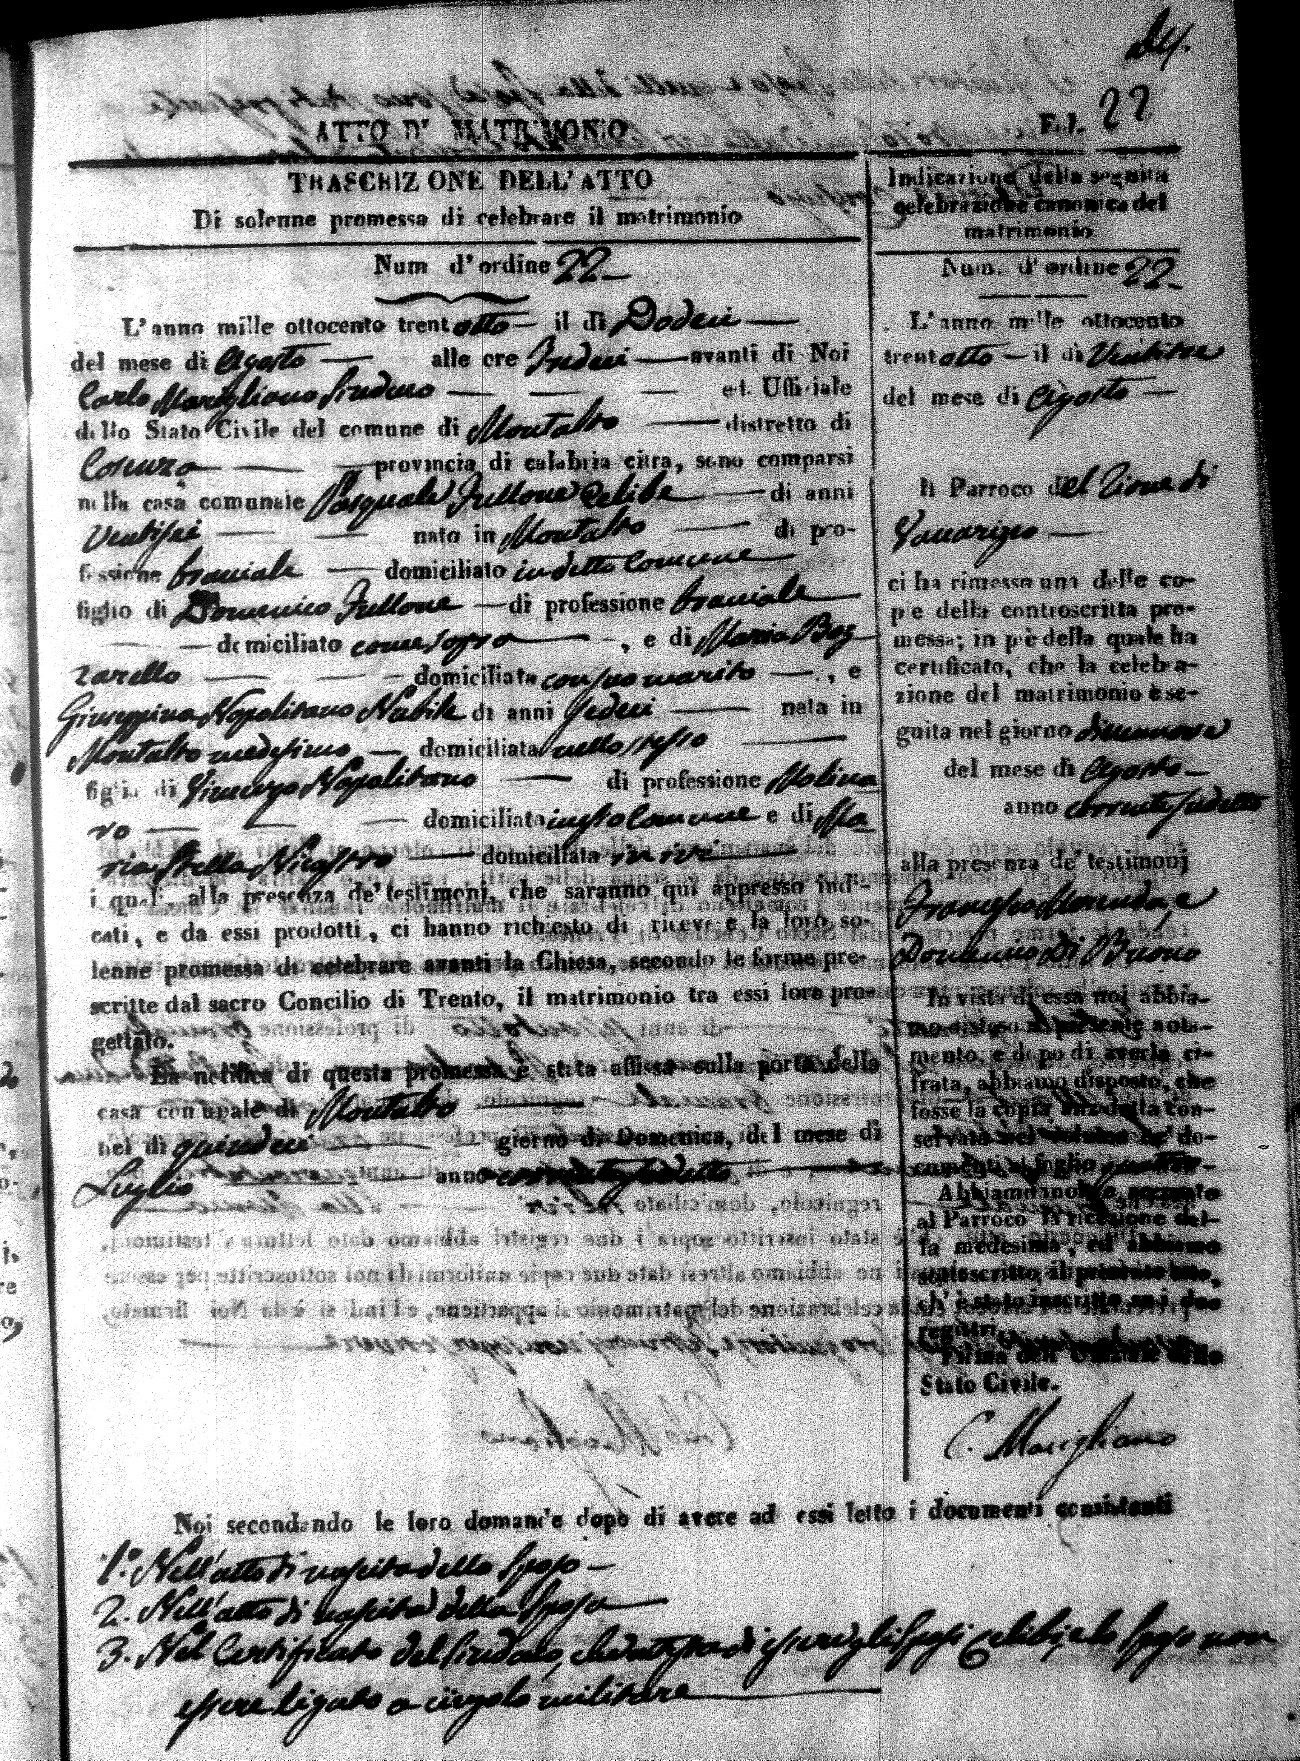 24.
ATTO DI MATRIMONIO
Fol. 22
TRASCRIZIONE DELL'ATTO
Di solenne promessa di celebrare il matrimonio
Num d'ordine 22
L'anno mille ottocento trentotto il di Dodeci
del mese di Agosto alle ore Tredeci avanti di Noi
Carlo Marigliano Sindaco ed Ufficiale
dello Stato Civile del comune di Montalto distretto di
Cosenza provincia di calabria citra, sono comparsi
nella casa comunale Pasquale Fullone Celibe di anni
Ventisei nato in Montalto di pro-
fessione bracciale domiciliato in detto Comune
figlio di Domenico Fullone di professione bracciale
domiciliato come sopra, e di Maria Boz
zarello domiciliata con suo marito, e
Giuseppina Napolitano Nubile di anni Sedeci nata in
Montalto medesimo domiciliata nello stesso
figlia di Vincenzo Napolitano di professione Molina
ro domiciliato in esso Comune e di Ma
ria Stella Nicastro domiciliata ivi
i quali alla presenza de' testimoni, che saranno qui appresso indi-
cati, e da essi prodotti, ci hanno richiesto di ricevere la loro so-
lenne promessa di celebrare avanti la Chiesa, secondo le forme pre-
scritte dal sacro Concilio di Trento, il matrimonio tra essi loro pro-
gettato.
La notifica di questa promessa è stata affissa sulla porta della
casa comunale di Montalto
nel di quindeci giorno di Domenica, del mese di
Luglio anno corrente sudetto
Indicazione della seguita
celebrazione canonica del
matrimonio
Num. d'ordine 22
L'anno mille ottocento
trentotto il di Ventitre
del mese di Agosto
Il Parroco del Rione di
Vaccarizzo
ci ha rimessa una delle co-
pie della controscritta pro-
messa; in piè della quale ha
certificato, che la celebra-
zione del matrimonio è se-
guita nel giorno dicinnove
del mese di Agosto
anno corrente sudetto
alla presenza de' testimonj
Francesco Morunda, e
Domenico Di Buono
In vista di essa noi abbia-
mo disteso il presente nota-
mento, e dopo di averla ci-
frata, abbiamo disposto, che
fosse la copia anzidetta con-
servata nel volume de' do-
cumenti al foglio
Abbiamo inoltre accusato
al Parroco la ricezione del-
la medesima, ed abbiamo
sottoscritto il presente atto,
ch'è stato inscritto su i due
registri
Firma dell'Uffiziale dello
Stato Civile.
C. Marigliano
Noi secondando le loro domande dopo di avere ad essi letto i documenti consistenti
1.° Nell'atto di nascita dello Sposo
2. Nell'atto di nascita della Sposa
3. Nel Certificato del Sindaco, che attesta di essere gli Sposi Celibi, e lo Sposo non
essere ligato a vincolo militare